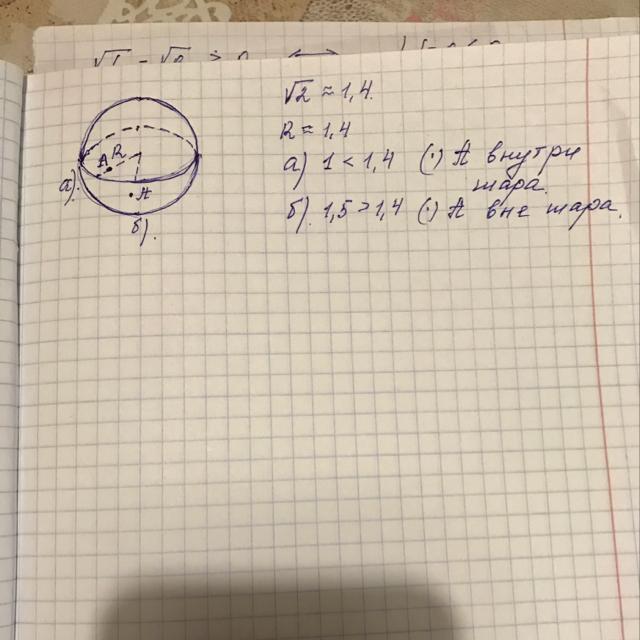 √2 ≈ 1,4.
R ≈ 1,4
а) 1 < 1,4 (·) А внутри
шара.
б). 1,5 > 1,4 (·) А вне шара.
А R
а).
·А
б).